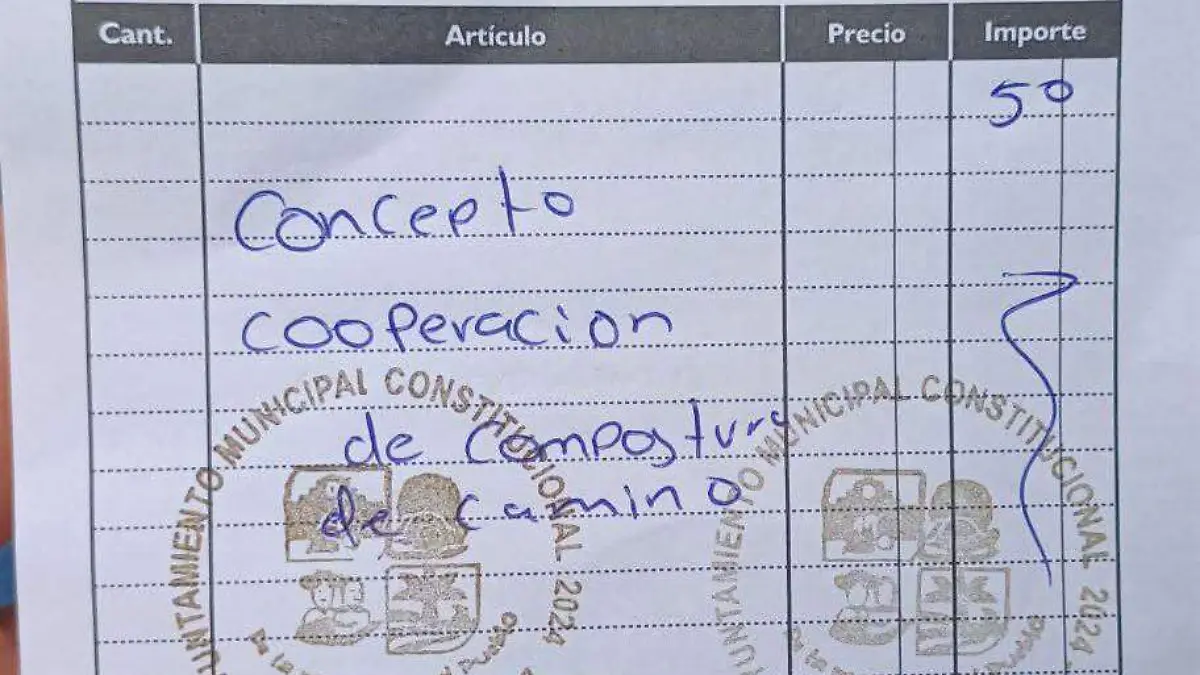 Cant. Artículo Precio Importe
50
Concepto
cooperacion
de compostura
de camino
AYUNTAMIENTO MUNICIPAL CONSTITUCIONAL 2024
UNTAMIENTO MUNICIPAL CONSTITUCIONAL 2024